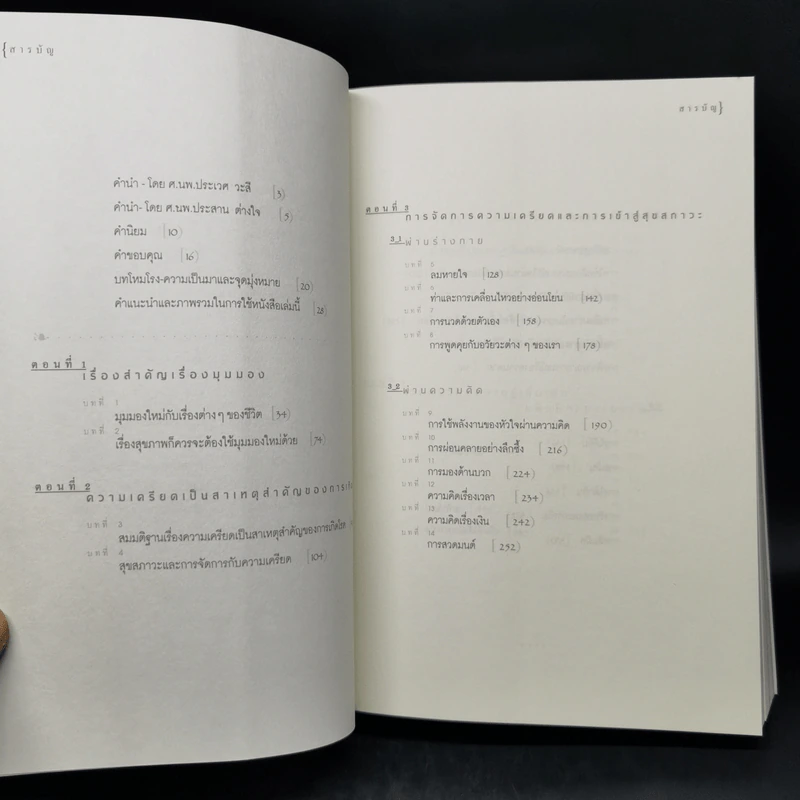 {สารบัญ
คำนำ - โดย ศ.นพ.ประเวศ วะสี [3)
คำนำ- โดย ศ.นพ.ประสาน ต่างใจ [5)
คำนิยม [10)
คำขอบคุณ [16)
บทโหมโรง-ความเป็นมาและจุดมุ่งหมาย [20)
คำแนะนำและภาพรวมในการใช้หนังสือเล่มนี้ [28)
ตอนที่ 1
เรื่องสำคัญเรื่องมุมมอง
บทที่ 1
มุมมองใหม่กับเรื่องต่าง ๆ ของชีวิต [34)
บทที่ 2
เรื่องสุขภาพก็ควรจะต้องใช้มุมมองใหม่ด้วย [74)
ตอนที่ 2
ความเครียดเป็นสาเหตุสำคัญของการ
บทที่ 3
สมมติฐานเรื่องความเครียดเป็นสาเหตุสำคัญของการเกิดโรค
บทที่ 4
สุขสภาวะและการจัดการกับความเครียด [104)
สารบัญ}
ตอนที่ 3
การจัดการความเครียดและการเข้าสู่สุขสภาวะ
3.1 ผ่านร่างกาย
บทที่ 5
ลมหายใจ [128)
บทที่ 6
ท่าและการเคลื่อนไหวอย่างอ่อนโยน [142)
บทที่ 7
การนวดด้วยตัวเอง [158)
บทที่ 8
การพูดคุยกับอวัยวะต่าง ๆ ของเรา [178)
3.2 ผ่านความคิด
บทที่ 9
การใช้พลังงานของหัวใจผ่านความคิด [190)
บทที่ 10
การผ่อนคลายอย่างลึกซึ้ง [216)
บทที่ 11
การมองด้านบวก [224)
บทที่ 12
ความคิดเรื่องเวลา [234)
บทที่ 13
ความคิดเรื่องเงิน [242)
บทที่ 14
การสวดมนต์ [252)